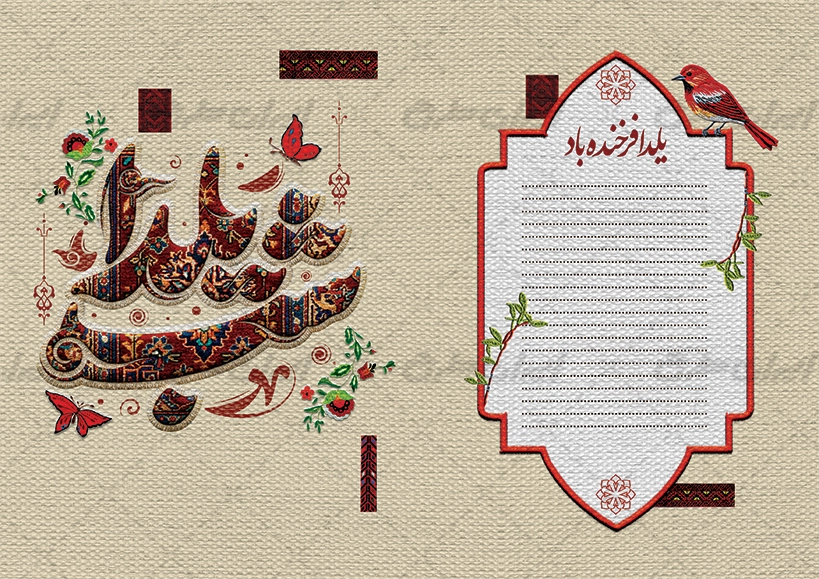 شب یلدا
یلدا فرخنده باد